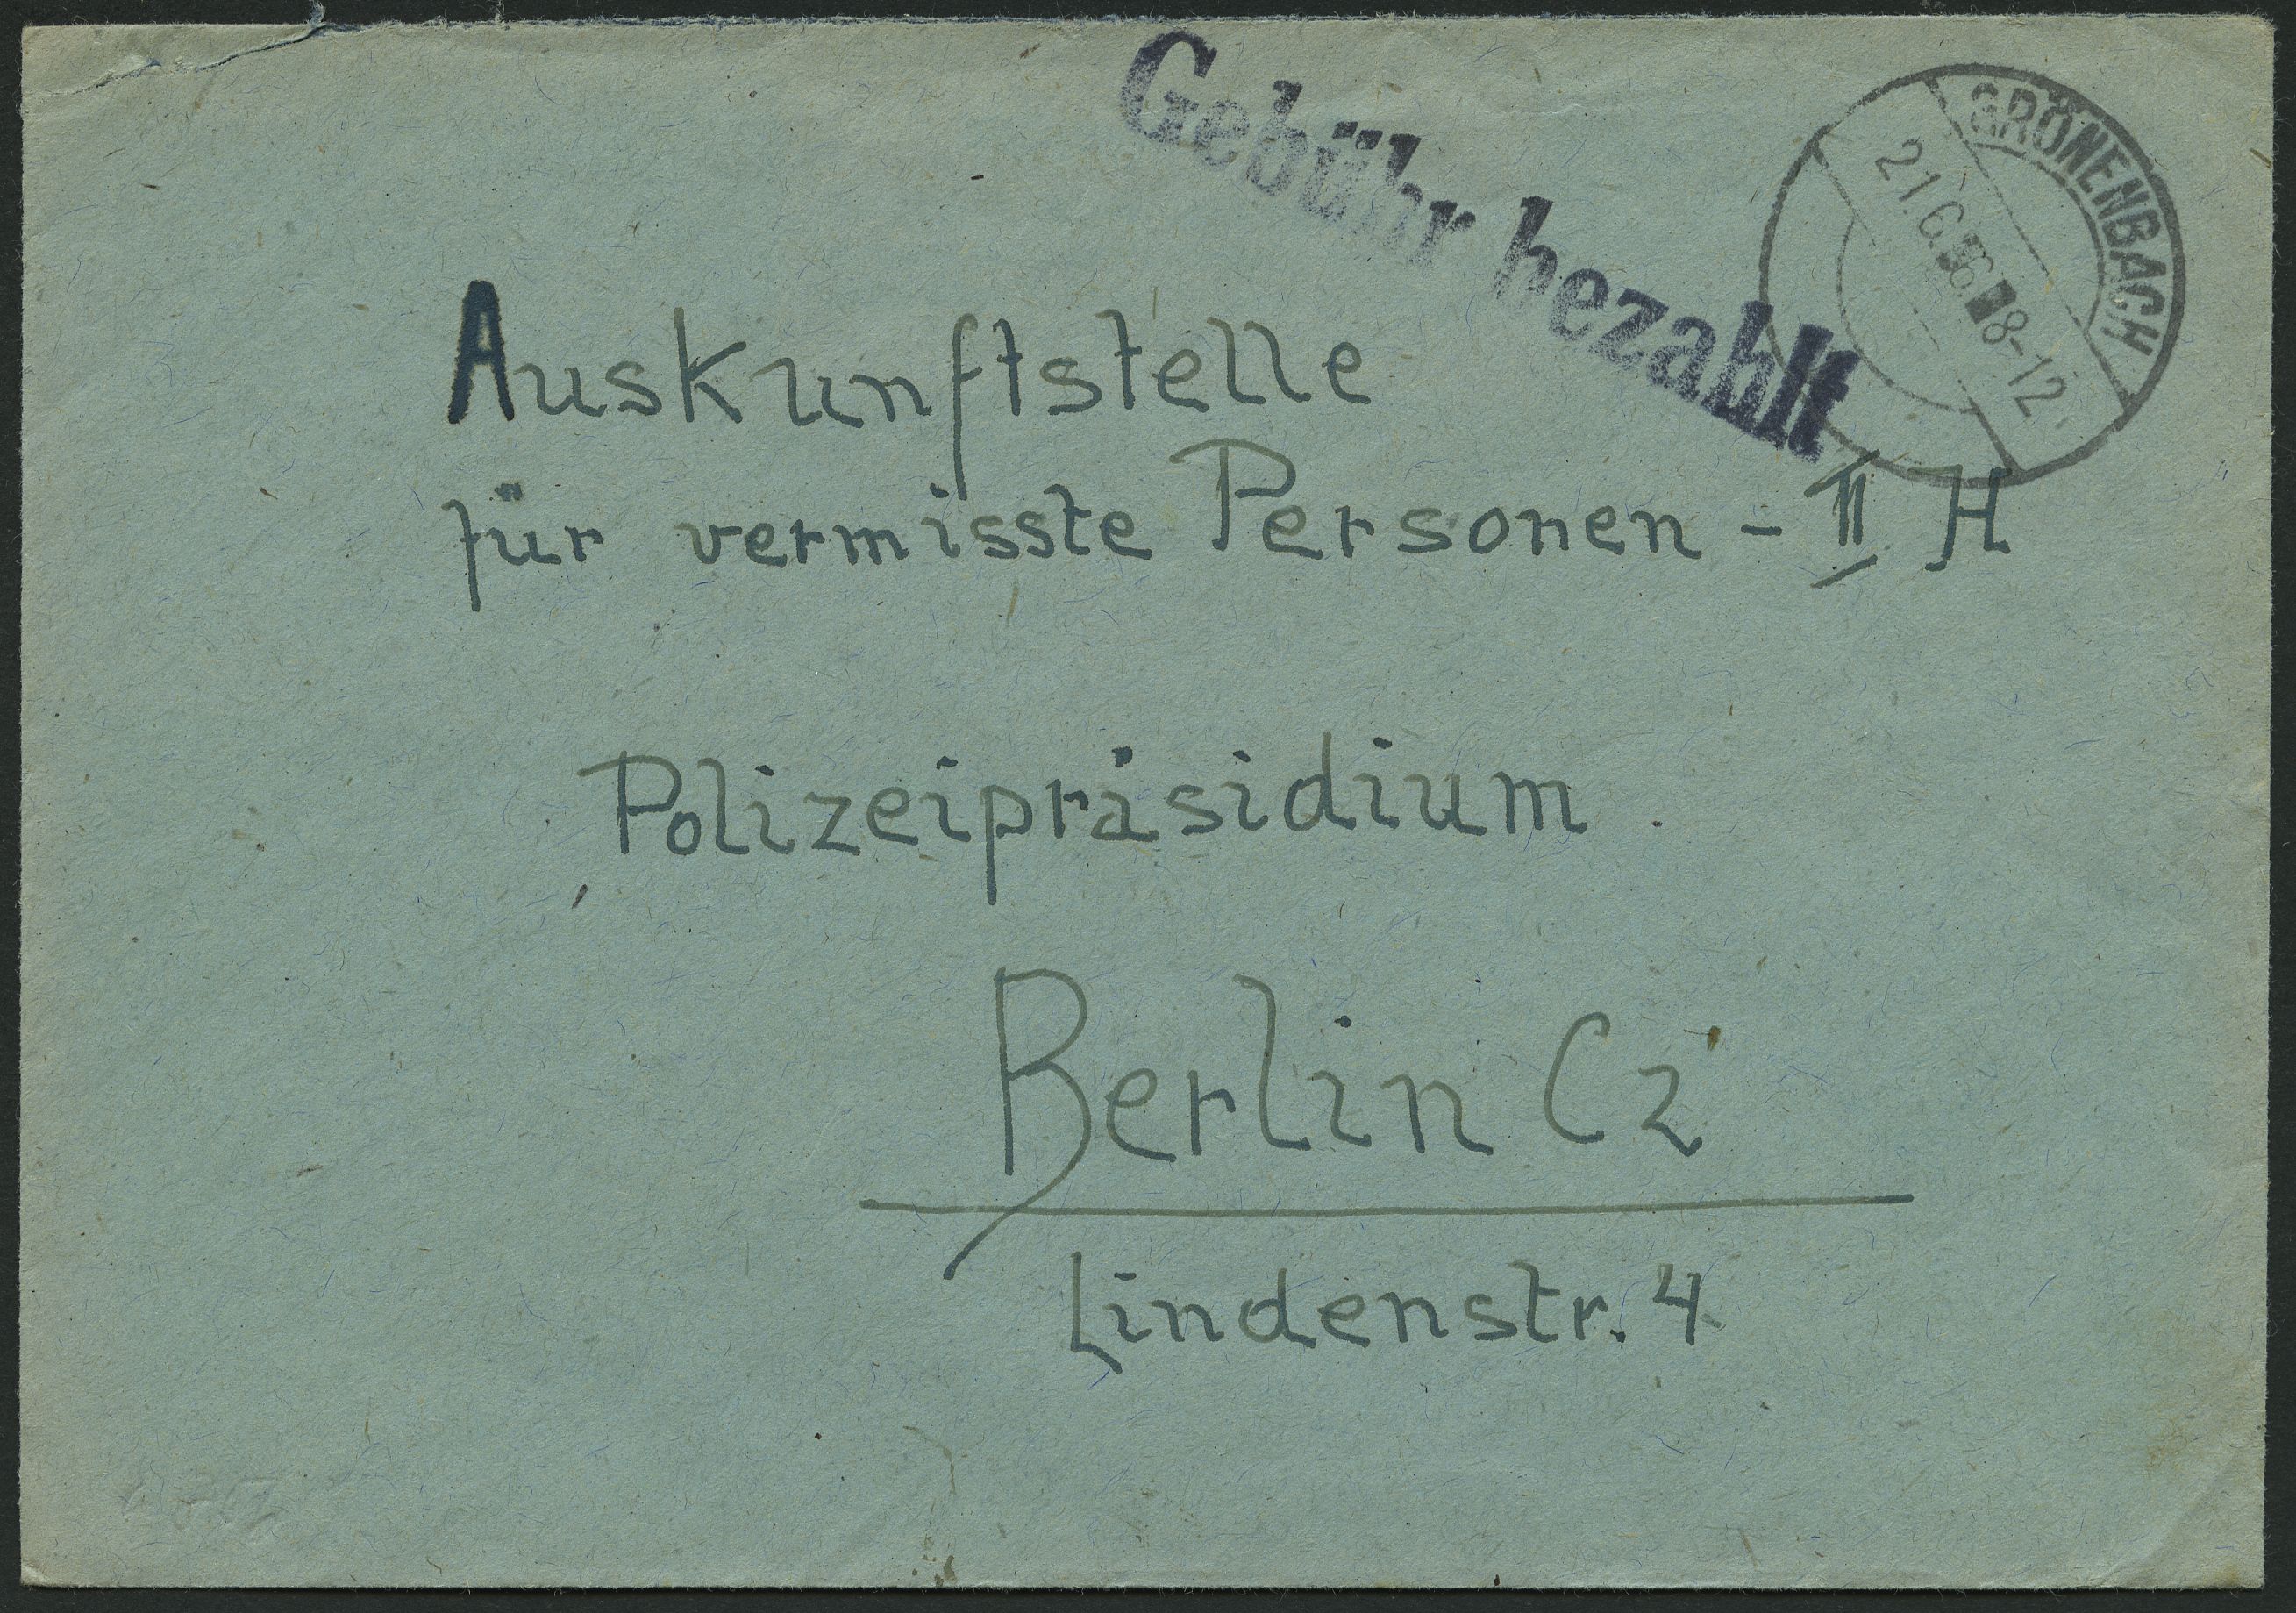 Gebühr bezahlt
GRÖNENBACH
21.6. 8-12
Auskunftstelle
für vermisste Personen - II H
Polizeipräsidium
Berlin C2
Lindenstr. 4